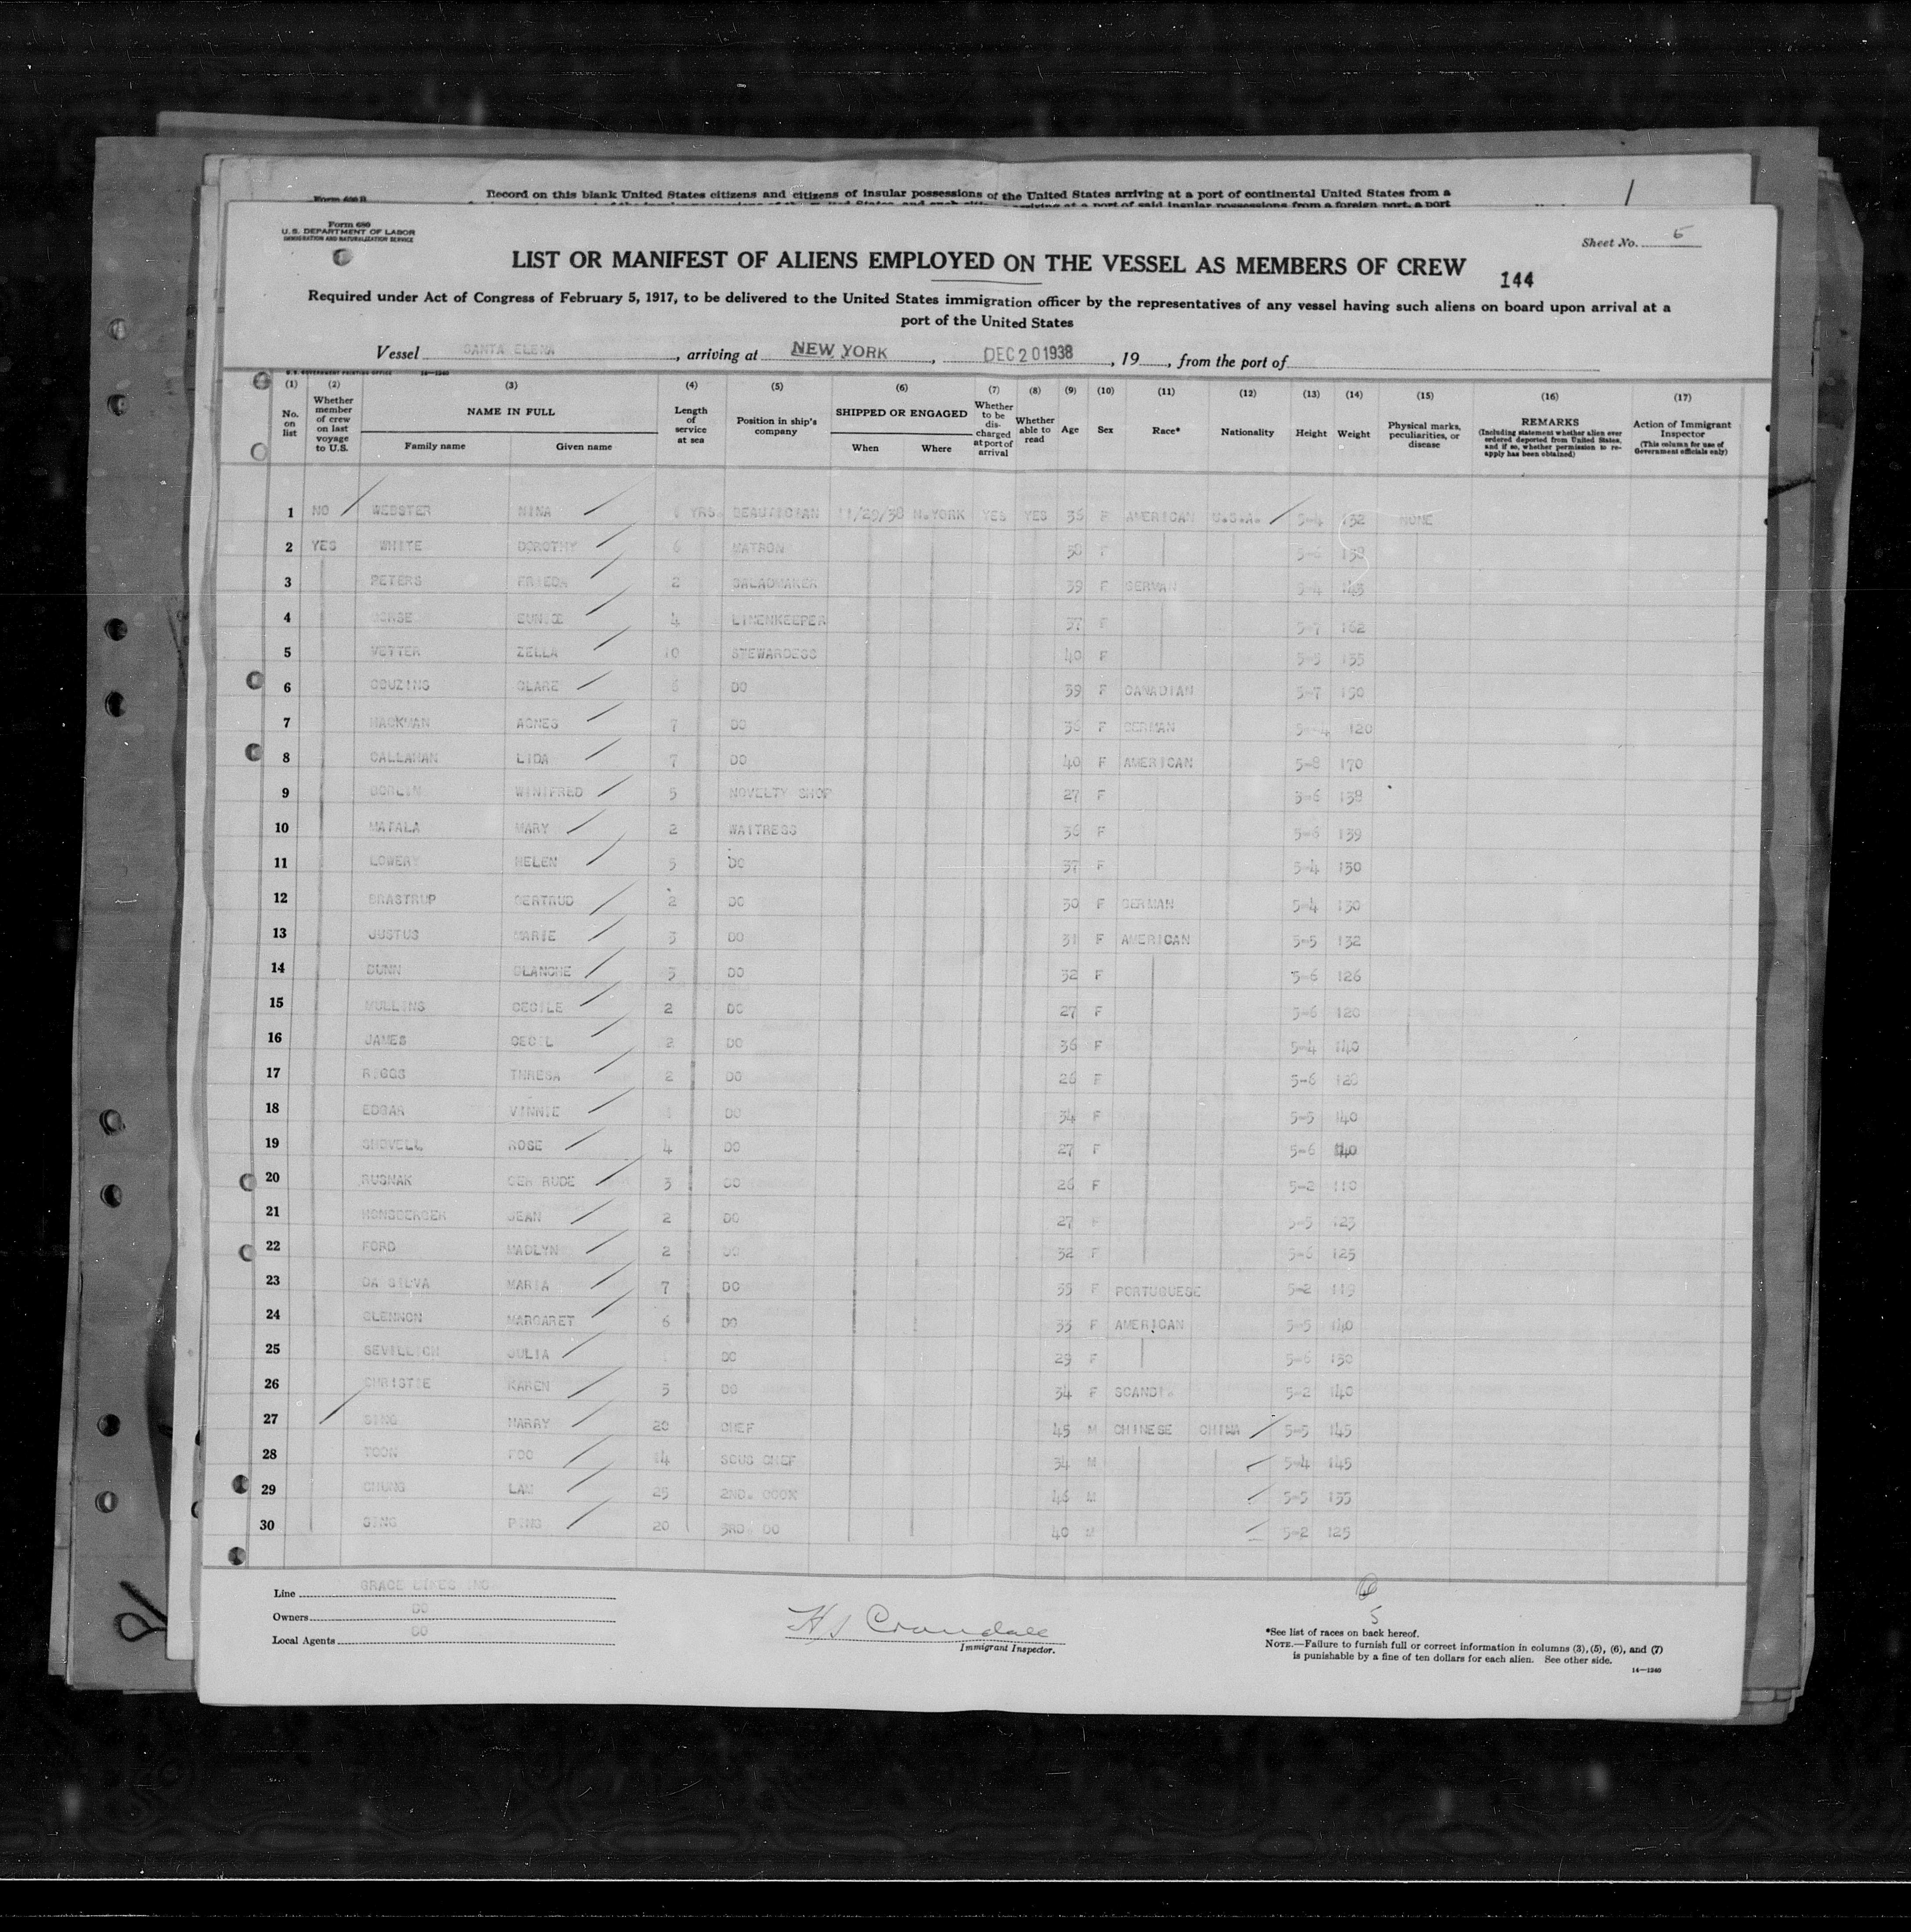 Form 680 B
Record on this blank United States citizens and citizens of insular possessions of the United States arriving at a port of continental United States from a
Form 680
U.S. DEPARTMENT OF LABOR
IMMIGRATION AND NATURALIZATION SERVICE
Sheet No. 5
LIST OR MANIFEST OF ALIENS EMPLOYED ON THE VESSEL AS MEMBERS OF CREW
144
Required under Act of Congress of February 5, 1917, to be delivered to the United States immigration officer by the representatives of any vessel having such aliens on board upon arrival at a
port of the United States
Vessel SANTA ELENA, arriving at NEW YORK, DEC 20 1938, 19, from the port of
U.S. GOVERNMENT PRINTING OFFICE 14—1240
(1) (2) (3) (4) (5) (6) (7) (8) (9) (10) (11) (12) (13) (14) (15) (16) (17)
No. on list
Whether member of crew on last voyage to U.S.
NAME IN FULL
Family name Given name
Length of service at sea
Position in ship's company
SHIPPED OR ENGAGED
When Where
Whether to be discharged at port of arrival
Whether able to read
Age
Sex
Race*
Nationality
Height
Weight
Physical marks, peculiarities, or disease
REMARKS
(Including statement whether alien ever ordered deported from United States, and if so, whether permission to reapply has been obtained)
Action of Immigrant Inspector
(This column for use of Government officials only)
1 NO WEBSTER NINA YRS. BEAUTICIAN 11/29/38 N.YORK YES YES 36 F AMERICAN U.S.A. 5-4 132 NONE
2 YES WHITE DOROTHY 6 MATRON 38 F 5-6 138
3 PETERS FRIEDA 2 SALADMAKER 39 F GERMAN 5-4 143
4 EUNICE 4 LINENKEEPER 37 F 5-7 162
5 VETTER ZELLA 10 STEWARDESS 40 F 5-5 135
6 COUZINS CLARE 6 DO 39 F CANADIAN 5-7 150
7 HACKMAN AGNES 7 DO 36 F GERMAN 5-4 120
8 CALLAHAN LIDA 7 DO 40 F AMERICAN 5-8 170
9 WINIFRED 5 NOVELTY SHOP 27 F 5-6 138
10 MAFALA MARY 2 WAITRESS 36 F 5-6 139
11 LOWERY HELEN 5 DO 37 F 5-4 130
12 BRASTRUP GERTRUD 2 DO 30 F GERMAN 5-4 130
13 JUSTUS MARIE 3 DO 31 F AMERICAN 5-5 132
14 DUNN BLANCHE 3 DO 32 F 5-6 126
15 MULLINS CECILE 2 DO 27 F 5-6 120
16 JAMES CECIL 2 DO 36 F 5-4 140
17 RIGGS THRESA 2 DO 26 F 5-6 128
18 EDGAR VINNIE DO 34 F 5-5 140
19 SHOVELL ROSE 4 DO 27 F 5-6 140
20 RUSNAK GERTRUDE 3 DO 26 F 5-2 110
21 HONSBERGER JEAN 2 DO 27 F 5-5 123
22 FORD MADLYN 2 DO 32 F 5-6 125
23 DA SILVA MARIA 7 DO 35 F PORTUGUESE 5-2 119
24 GLENNON MARGARET 6 DO 33 F AMERICAN 5-5 140
25 SEVILLICH JULIA DO 29 F 5-6 130
26 CHRISTIE KAREN 3 DO 34 F SCANDI. 5-2 140
27 SING HARRY 20 CHEF 45 M CHINESE CHINA 5-5 145
28 TOON FOO 14 SOUS CHEF 34 M 5-4 145
29 CHUNG LAM 25 2ND. COOK 46 M 5-5 135
30 SING PING 20 3RD. DO 40 M 5-2 125
Line GRACE LINES INC
Owners DO
Local Agents DO
H J Crandale
Immigrant Inspector.
6
5
*See list of races on back hereof.
NOTE.—Failure to furnish full or correct information in columns (3), (5), (6), and (7)
is punishable by a fine of ten dollars for each alien. See other side.
14—1240